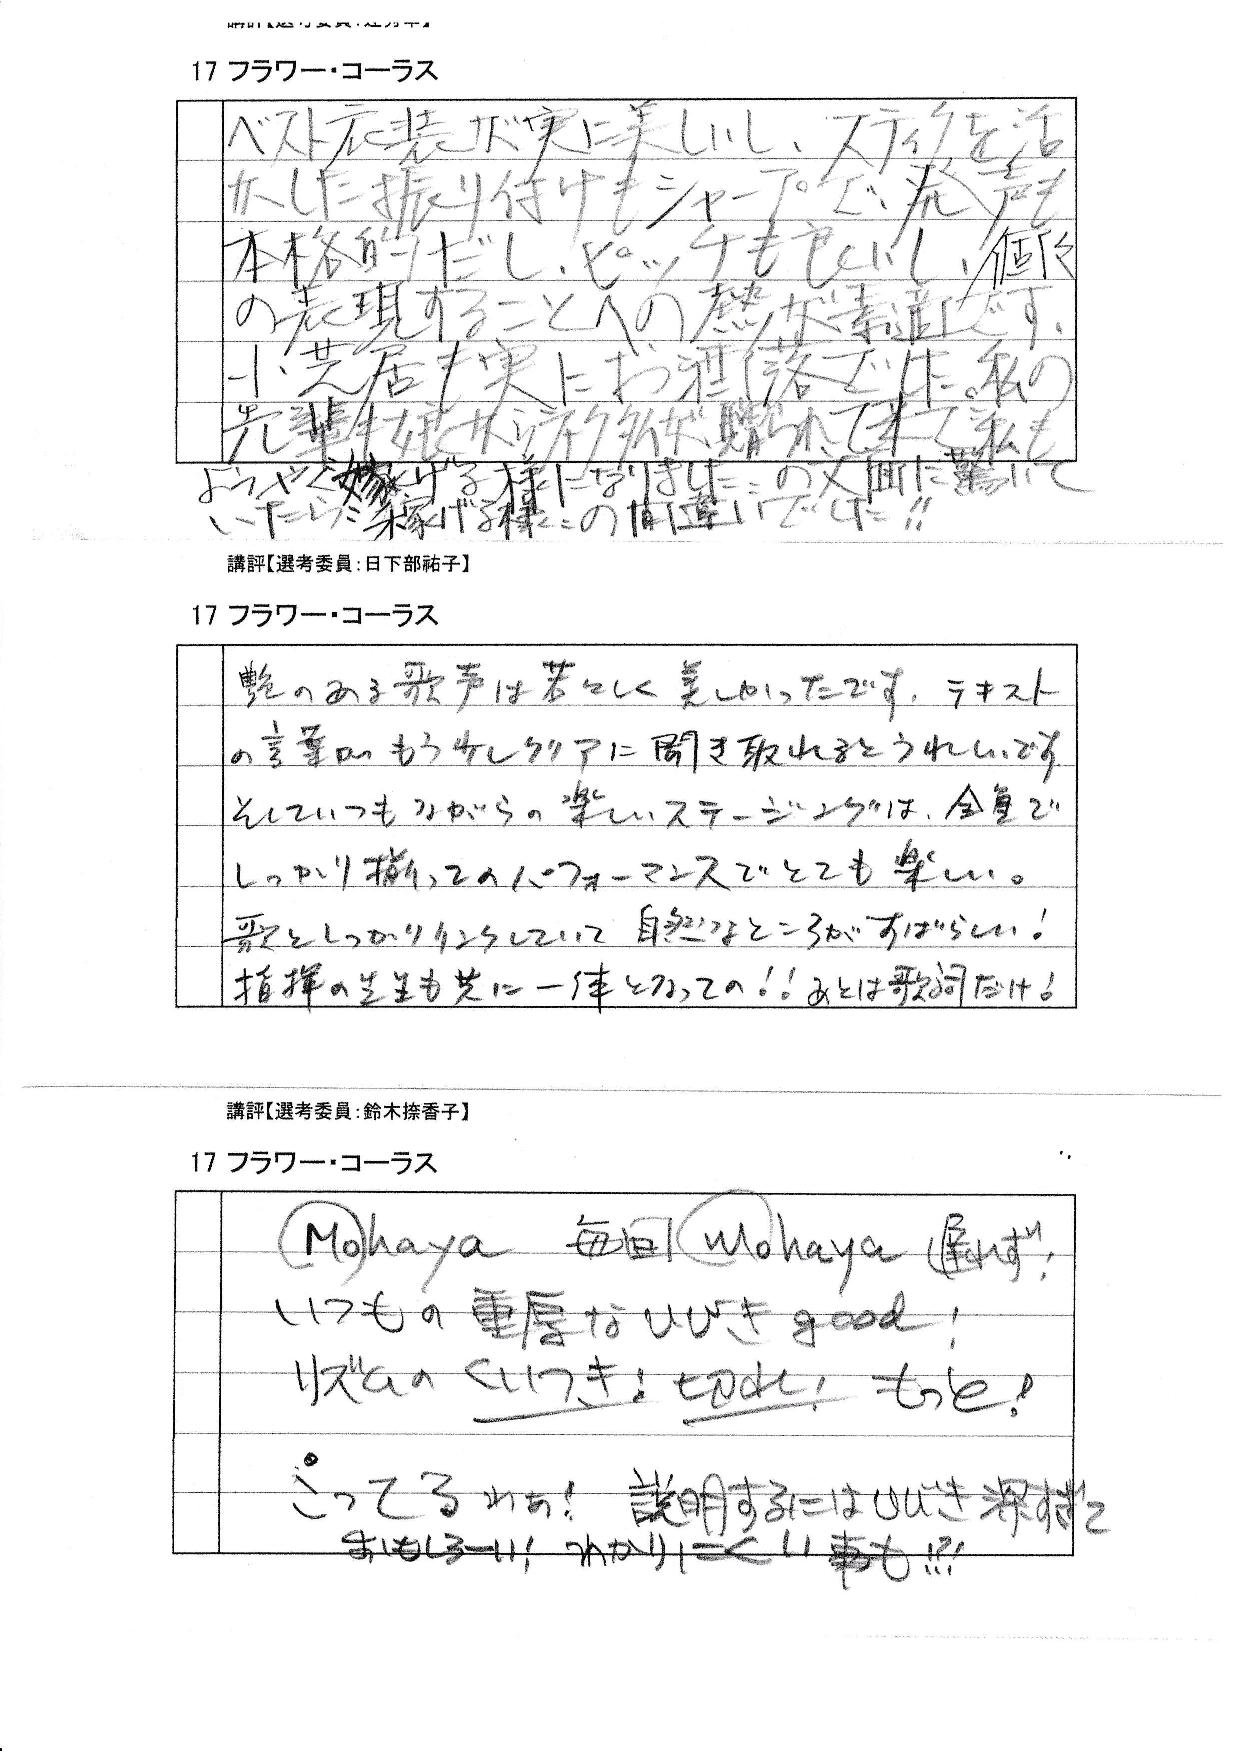 17 フラワー・コーラス
ベスト衣装が実に美しいし、スティックを活
かした振り付けもシャープで、発声も
本格的だし、ピッチも良いし、個々
の表現することへの熱が素適です、
小芝居も実にお洒落でした。私の
先輩は娘から が贈られて来て「私も
ようやく嫁げる様になりました…の文面に驚いて
いたら…稼げる様…の間違いでした!!
講評【選考委員:日下部祐子】
17 フラワー・コーラス
艶のある歌声は若々しく美しかったです。テキスト
の言葉がもう少しクリアに聞き取れるとうれしいです
そしていつもながらの楽しいステージングは、全員で
しっかり揃ってのパフォーマンスでとても楽しい。
歌としっかりリンクしていて自然なところがすばらしい!
指揮の先生も共に一体となっての!!あとは歌詞だけ!
講評【選考委員:鈴木捺香子】
17 フラワー・コーラス
Mohaya 毎回 Mohaya 遅れず!
いつもの重厚なひびき good!
リズムのくいつき!切れ!もっと!
こってるわぁ!説明するにはひびき深すぎて
おもしろーい!わかりにくい事も!!!